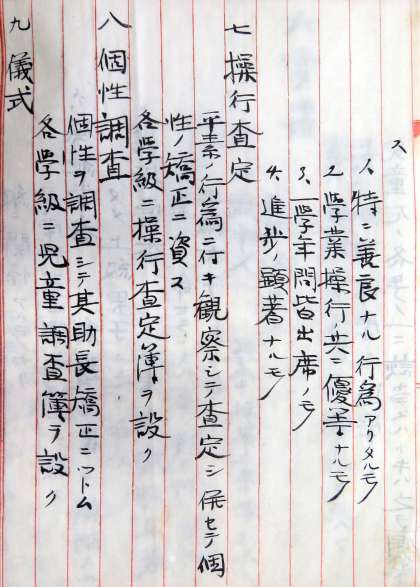 ス
1、特ニ善良ナル行為アリタルモノ
2、学業操行共ニ優等ナルモノ
3、一学年間皆出席ノモノ
4、進歩ノ顕著ナルモノ
七 操行査定
平素ノ行為ニ付キ観察シテ査定シ併セテ個
性ノ矯正ニ資ス
各学級ニ操行査定簿ヲ設ク
八 個性調査
個性ヲ調査シテ其助長矯正ニツトム
各学級ニ児童調査簿ヲ設ク
九 儀式